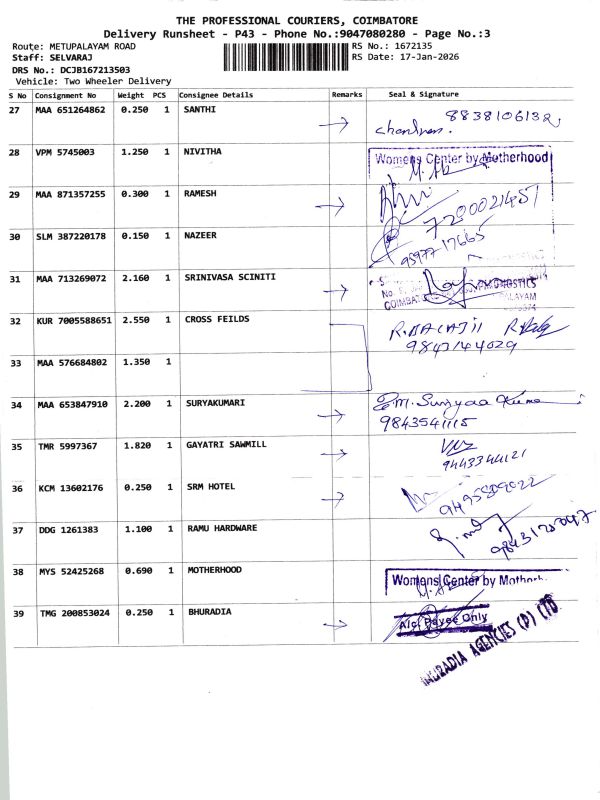 THE PROFESSIONAL COURIERS, COIMBATORE
Delivery Runsheet - P43 - Phone No.:9047080280 - Page No.:3
Route: METUPALAYAM ROAD RS No.: 1672135
Staff: SELVARAJ RS Date: 17-Jan-2026
DRS No.: DCJB167213503
Vehicle: Two Wheeler Delivery
S No Consignment No Weight PCS Consignee Details Remarks Seal & Signature
27 MAA 651264862 0.250 1 SANTHI
28 VPM 5745003 1.250 1 NIVITHA Womens Center by Motherhood
29 MAA 871357255 0.300 1 RAMESH
30 SLM 387220178 0.150 1 NAZEER 9597717665
31 MAA 713269072 2.160 1 SRINIVASA SCINITI
32 KUR 7005588651 2.550 1 CROSS FEILDS
33 MAA 576684802 1.350 1
34 MAA 653847910 2.200 1 SURYAKUMARI
9843541115
35 TMR 5997367 1.820 1 GAYATRI SAWMILL
9443344121
36 KCM 13602176 0.250 1 SRM HOTEL
37 DDG 1261383 1.100 1 RAMU HARDWARE
38 MYS 52425268 0.690 1 MOTHERHOOD Womens Center by
39 TMG 200853024 0.250 1 BHURADIA A/c Payee Only
AGENCIES (P) LTD